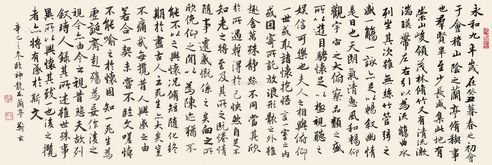 永和九年歲在癸丑暮春之初會
于會稽山陰之蘭亭脩禊事
也群賢畢至少長咸集此地有
崇山峻領茂林脩竹又有清流激
湍暎帶左右引以為流觴曲水
列坐其次雖無絲竹管弦之
盛一觴一詠亦足以暢敘幽情
是日也天朗氣清惠風和暢仰
觀宇宙之大俯察品類之盛
所以遊目騁懷足以極視聽之
娛信可樂也夫人之相與俯仰
一世或取諸懷抱悟言一室之內
或因寄所託放浪形骸之外雖
趣舍萬殊靜躁不同當其欣
於所遇暫得於己快然自足不
知老之將至及其所之既惓情
隨事遷感慨係之矣向之所
欣俛仰之間以為陳迹猶不
能不以之興懷況脩短隨化終
期於盡古人云死生亦大矣豈
不痛哉每攬昔人興感之由
若合一契未嘗不臨文嗟悼
不能喻之於懷固知一死生為
虛誕齊彭殤為妄作後之
視今亦由今之視昔悲夫故列
敘時人錄其所述雖世殊事
異所以興懷其致一也後之攬
者亦將有感於斯文
之冬臨神龍本蘭亭